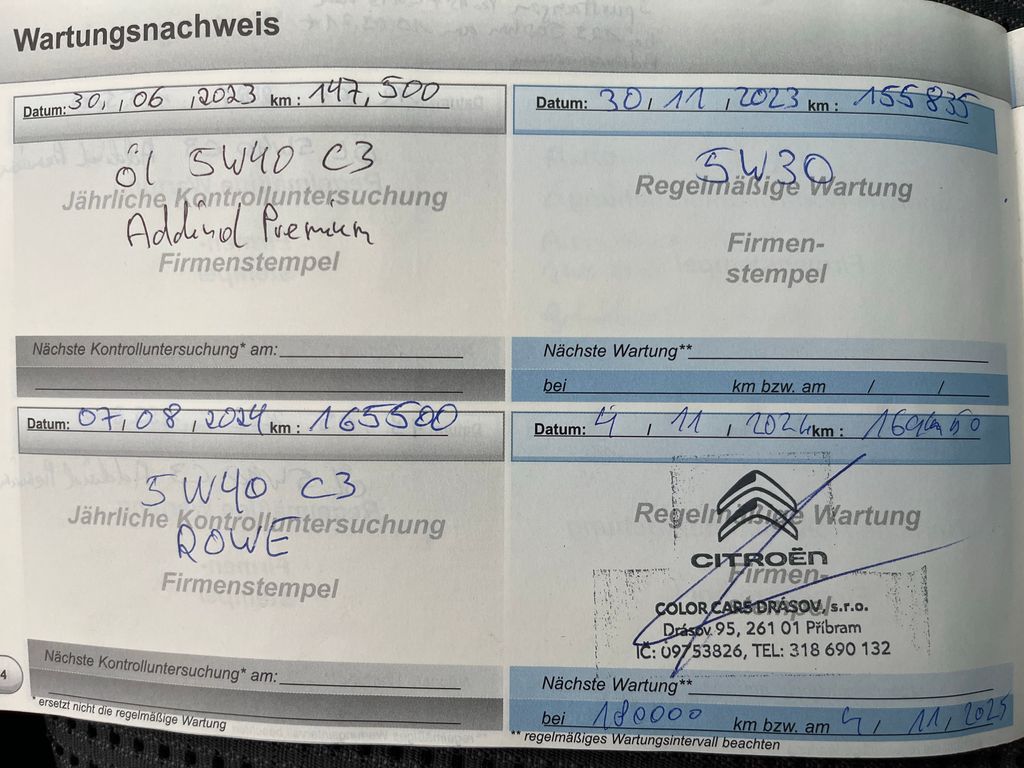 Wartungsnachweis
Datum: 30, 06, 2023 km: 147,500
öl 5W40 C3
Jährliche Kontrolluntersuchung
Addinol Premium
Firmenstempel
Nächste Kontrolluntersuchung* am:
Datum: 30, 11, 2023 km: 155835
5W30
Regelmäßige Wartung
Firmen-
stempel
Nächste Wartung**
bei km bzw. am / /
Datum: 07, 08, 2024 km: 165500
5W40 C3
Jährliche Kontrolluntersuchung
ROWE
Firmenstempel
Nächste Kontrolluntersuchung* am:
* ersetzt nicht die regelmäßige Wartung
4
Datum: 4, 11, 2024 km:
Regelmäßige Wartung
CITROËN
Firmen-
stempel
COLOR CARS DRÁSOV, s.r.o.
Drásov 95, 261 01 Příbram
IČ: 09753826, TEL: 318 690 132
Nächste Wartung**
bei 180000 km bzw. am 4, 11, 2025
** regelmäßiges Wartungsintervall beachten